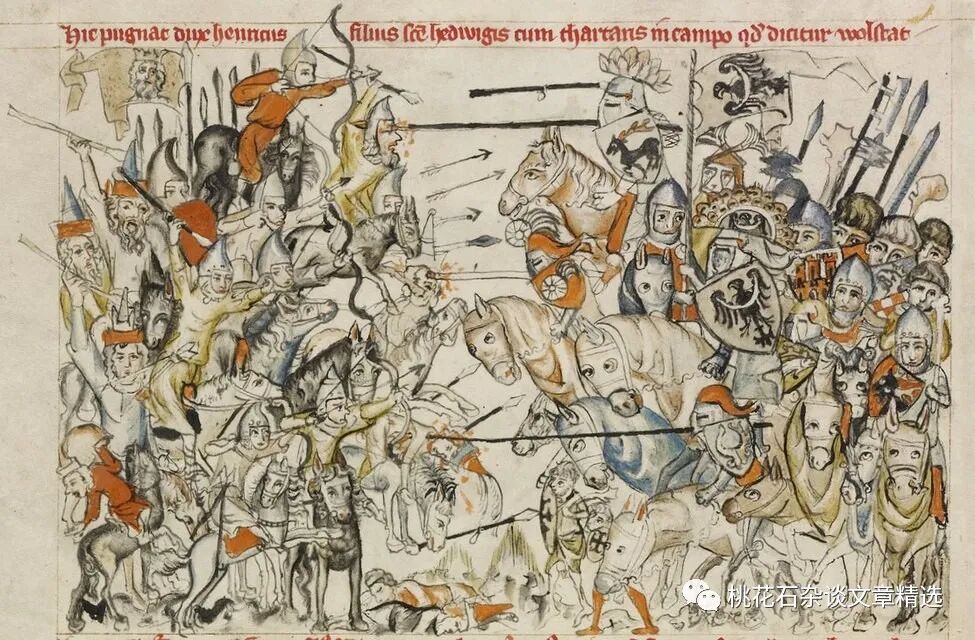 Hic pugnat dux henricus filius sce hedwigis cum thartaris in campo qd dicitur wolstat
桃花石杂谈文章精选